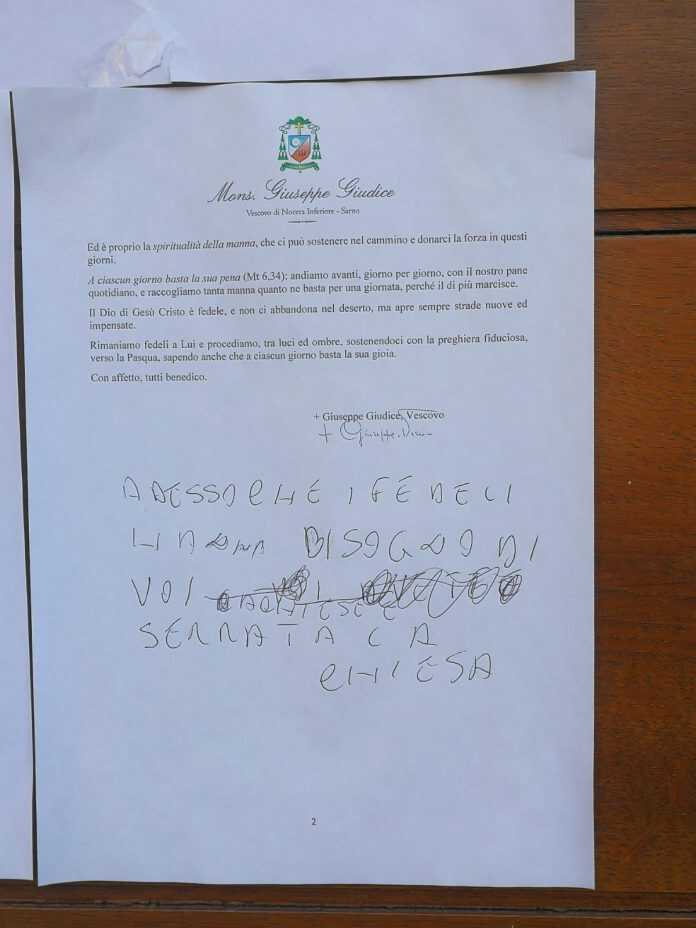 Mons. Giuseppe Giudice
Vescovo di Nocera Inferiore - Sarno
Ed è proprio la spiritualità della manna, che ci può sostenere nel cammino e donarci la forza in questi
giorni.
A ciascun giorno basta la sua pena (Mt 6,34); andiamo avanti, giorno per giorno, con il nostro pane
quotidiano, e raccogliamo tanta manna quanto ne basta per una giornata, perché il di più marcisce.
Il Dio di Gesù Cristo è fedele, e non ci abbandona nel deserto, ma apre sempre strade nuove ed
impensate.
Rimaniamo fedeli a Lui e procediamo, tra luci ed ombre, sostenendoci con la preghiera fiduciosa,
verso la Pasqua, sapendo anche che a ciascun giorno basta la sua gioia.
Con affetto, tutti benedico.
+ Giuseppe Giudice, Vescovo
+ Giuseppe
ADESSO CHE I FEDELI
HANNA BISOGNO DI
VOI
SERRATA LA
CHIESA
2